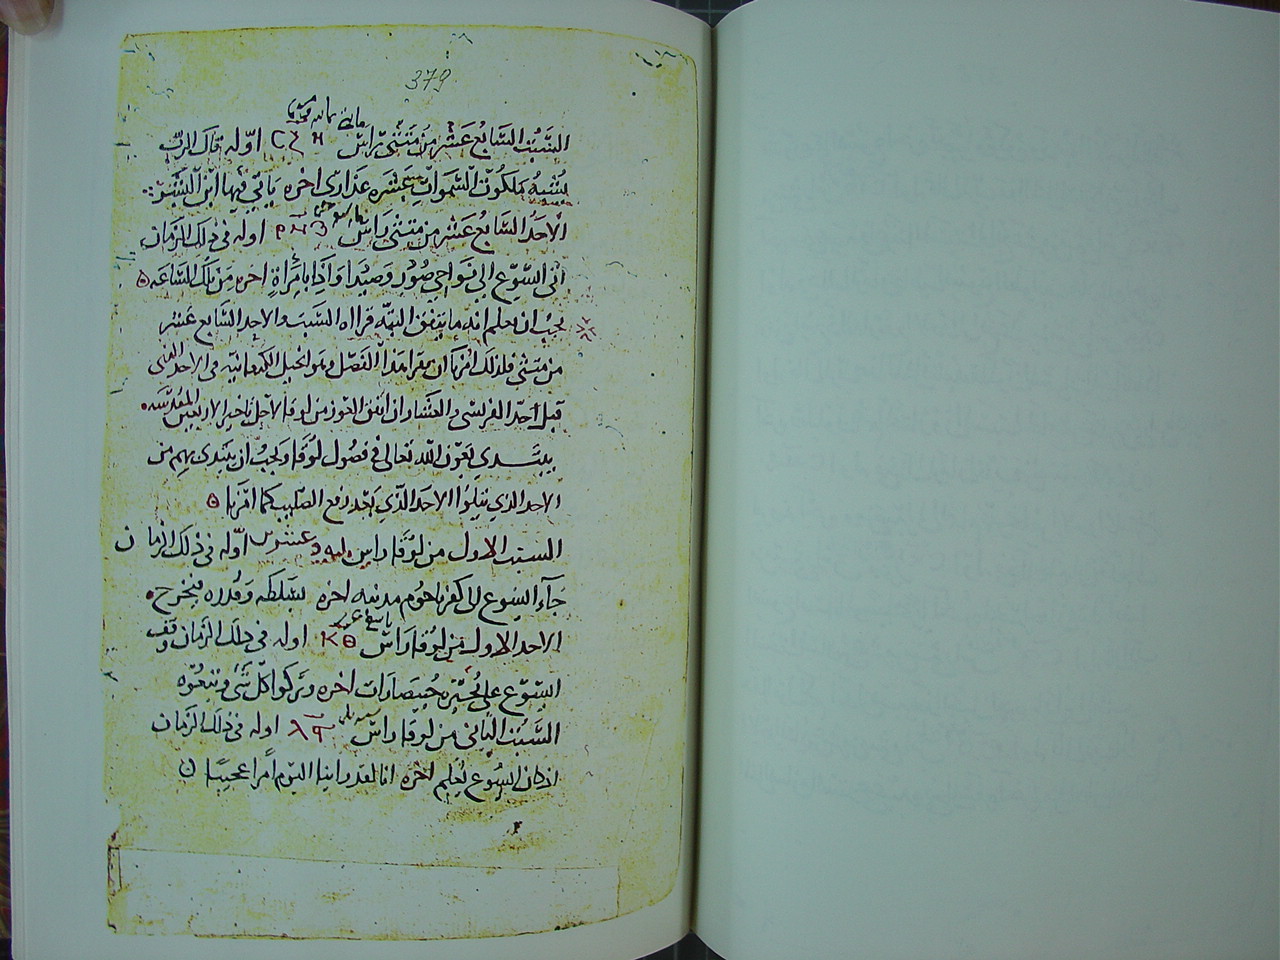 379
السَّبْت السَّابُع عَشَر مِنْ مَتَّى رَاسْ اوّله قاك الربّ
يُشْبِهُ مَلَكُوْت السَّموَاتِ عَشَره عَذارى اخره يَاتِي فيها ابْن البَشَر
الاَحَد السَّابُع عَشَر مِن مَتَّى رَاسْ اوله فى ذلك الزمَان
اتى اليَسُوْع الى نَوَاحِي صُوْر وَصَيْدا وَاذا بامرَاةٍ اخره مِنْ تلك السَّاعَه
يجب ان يعلم انه ما يتفق البتّه قراه السَّبت والاحد السَّابع عَشر
من مَتى فلذلك امرنا ان يقرا هذا الفَصْل وهو انجيل الكنعانيّه فى الاحد
قبل احَد الفريسى والعشار ان اتفق العَوز من لوقا لاجل تاخير الاربعين المقدّسَه
يبتَدي بعَون الله تعَالى فى فصُول لُوْقا ويجبُ ان يبتدى بهم من
الاحد الذي يتلوا الاحَد الذّي بَعْد رفع الصَّليب كما امَرنا
السبت الاول من لُوْقا راس اوّله فى ذلك الزمان
جَآء اليسُوع الى كفرناحُوم مدينه اخره
الاحد الاول من لوقا رَاسْ اوله فى ذلك الزَمان وقف
اليسُوْع على بُحَيْرَة جَنيصَارَات اخره وَتركوا كلّ شَى وتبعُوْه
السَّبْت الثَاني من لوقا راسْ اوله فى ذلك الزَمَان
اذ كان اليسُوْع يُعلم اخره انا لقد راينا اليَوم امرًا عَجيبًا